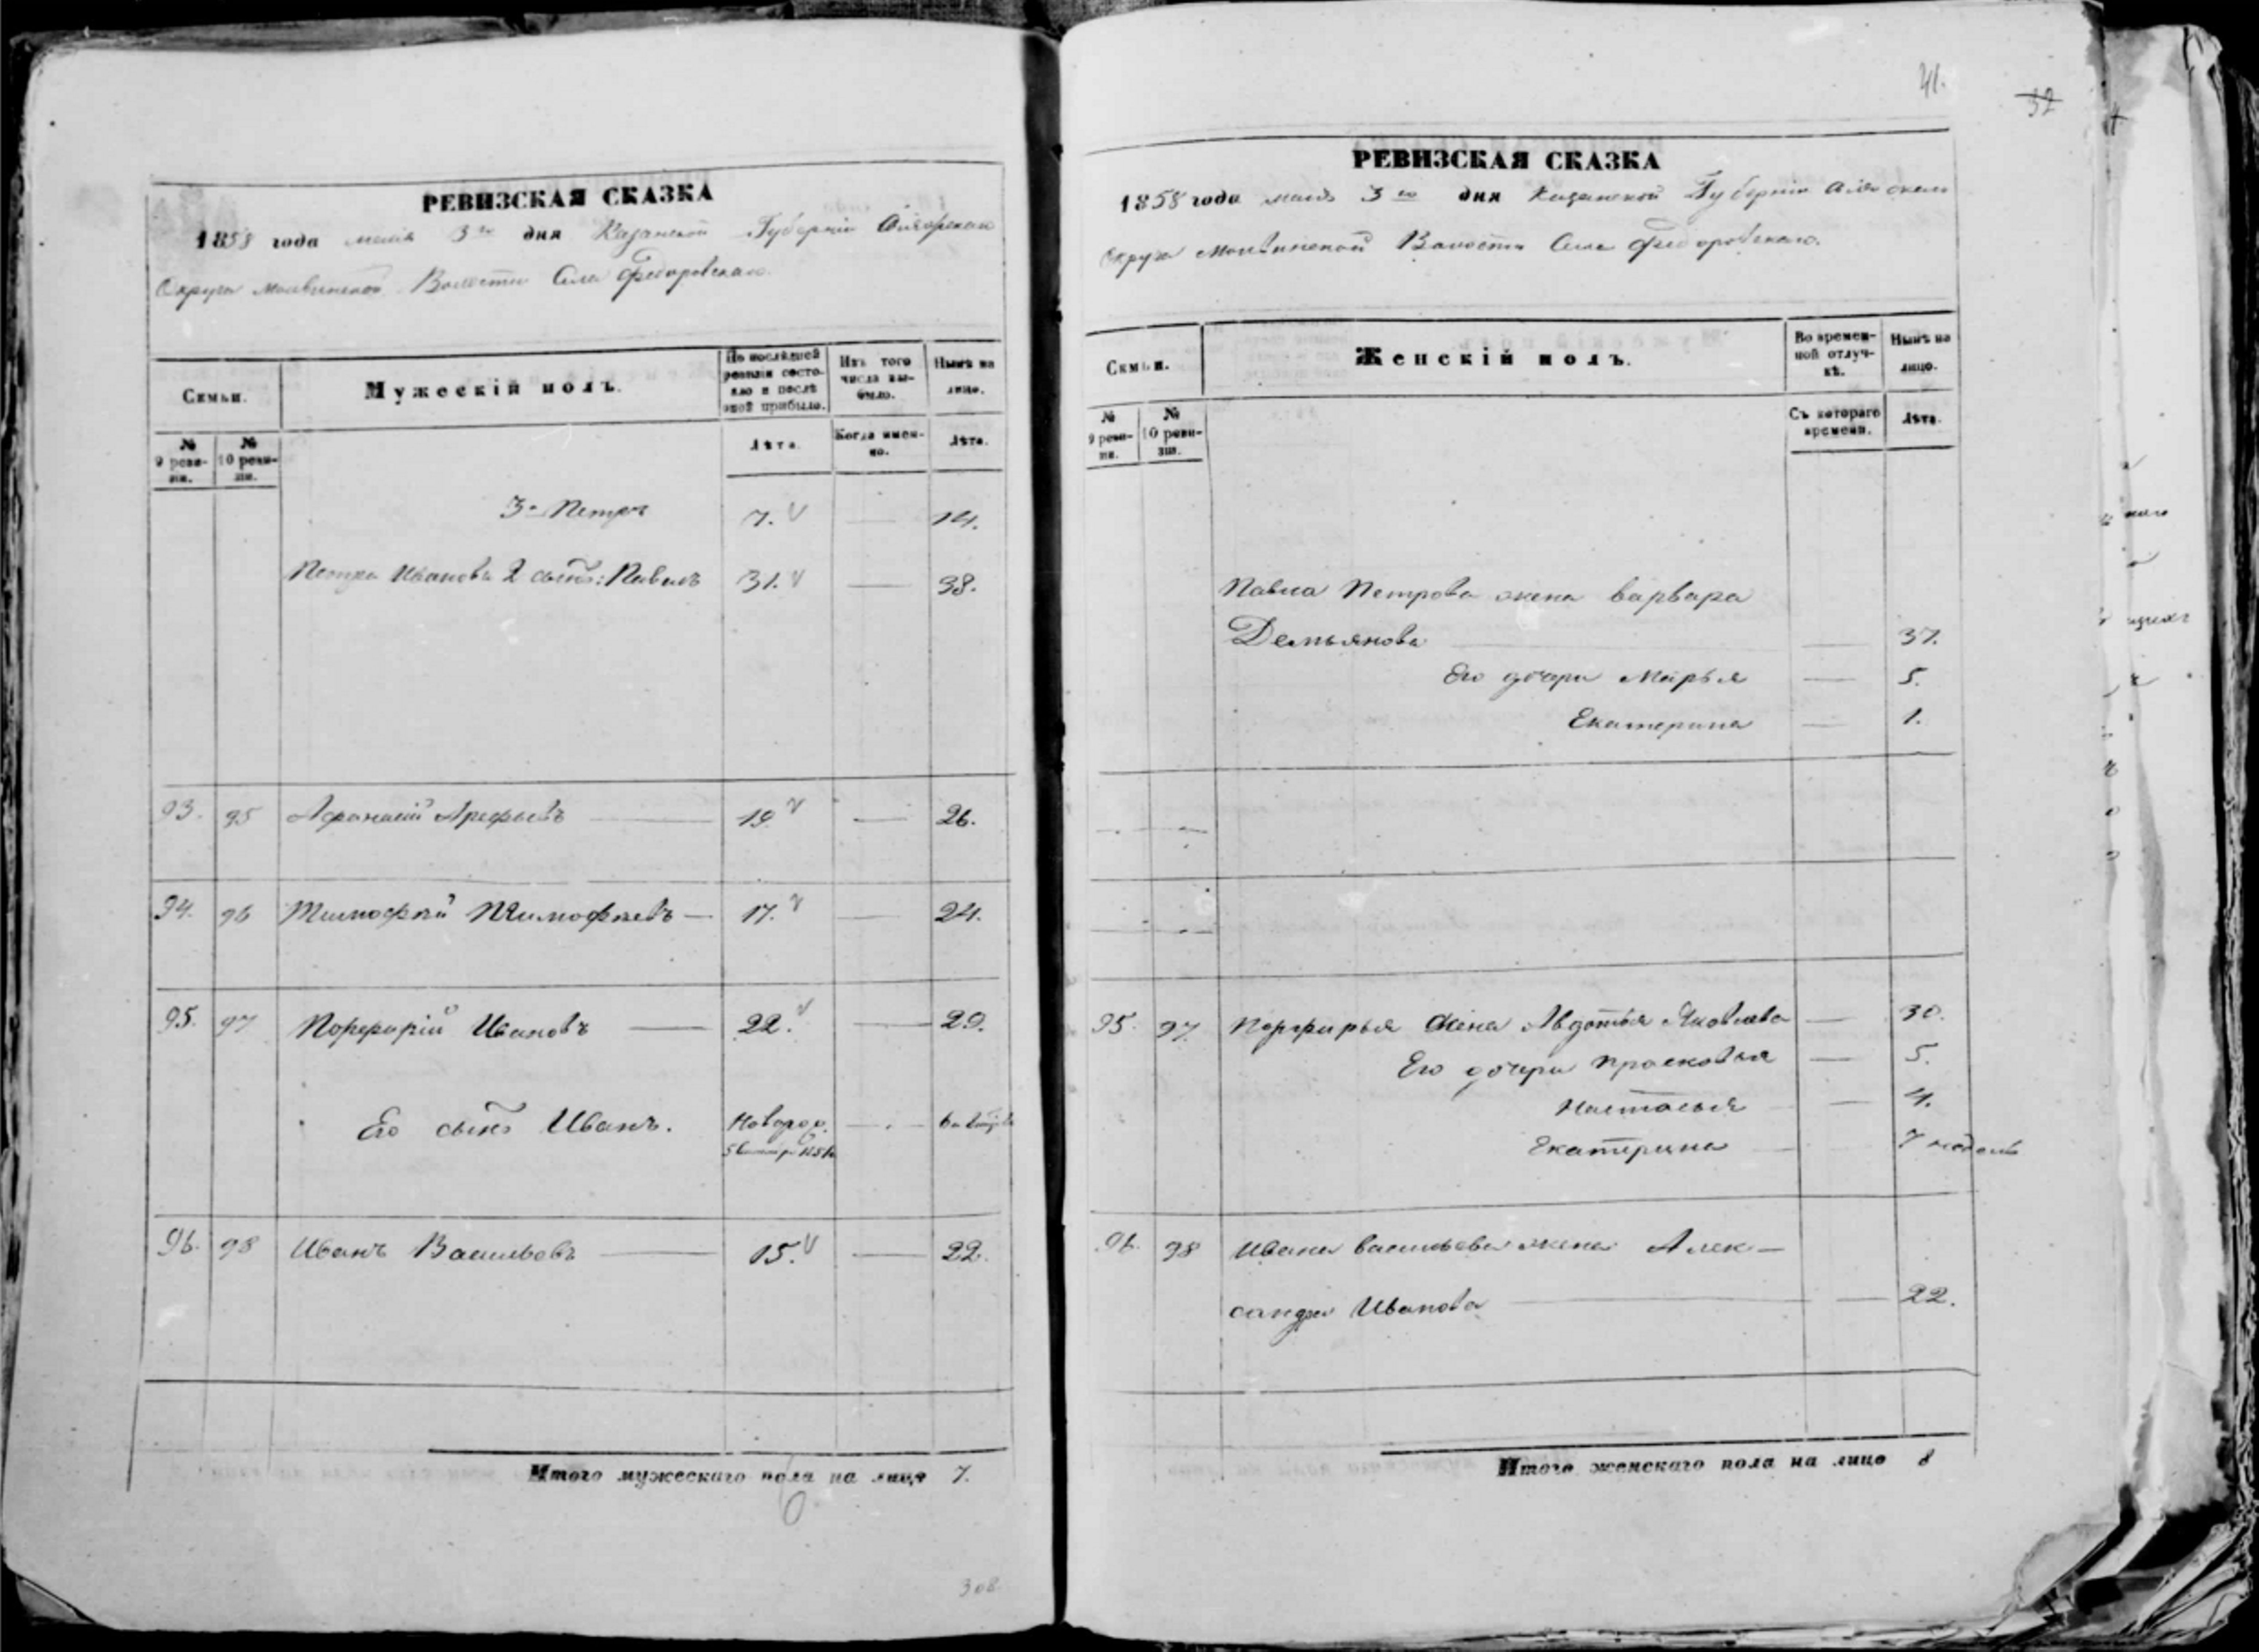 РЕВИЗСКАЯ СКАЗКА
1858 года маия 3го дня Казанской Губерніи
Округа Волости Села Федоровскаго
Семьи.
Мужескій полъ.
По последней ревизіи состояло и послѣ оной прибыло.
Изъ того числа выбыло.
Нынѣ на лицо.
№ 9 ревизіи.
№ 10 ревизіи.
Лѣта.
Когда именно.
Лѣта.
3й Петръ 7. — 14.
Петра Иванова 2 сынъ: Павелъ 31. — 38.
93. 95 Афанасій Арефьевъ — 19 — 26.
94. 96 Тимофѣй Тимофѣевъ — 17. — 24.
95. 97 Порфирій Ивановъ — 22. — 29.
Его сынъ Иванъ. Новорож. —
96. 98 Иванъ Васильевъ — 15. — 22.
Итого мужескаго пола на лицо 7.
6
308
41.
32
РЕВИЗСКАЯ СКАЗКА
1858 года маия 3го дня Казанской Губерніи
Округа Волости Села Федоровскаго.
Семьи.
Женскій полъ.
Во временной отлучкѣ.
Нынѣ на лицо.
№ 9 ревизіи.
№ 10 ревизіи.
Съ котораго времени.
Лѣта.
Павла Петрова жена варвара
Демьянова — 37.
Его дочери Марья — 5.
Екатерина — 1.
95. 97 Порфирья жена Авдотья Яковлева — 30.
Его дочери Прасковья — 5.
Настасья — 4.
Екатерина — 7 недель
96. 98 Ивана васильева жена Алек-
сандра Иванова — 22.
Итого женскаго пола на лицо 8